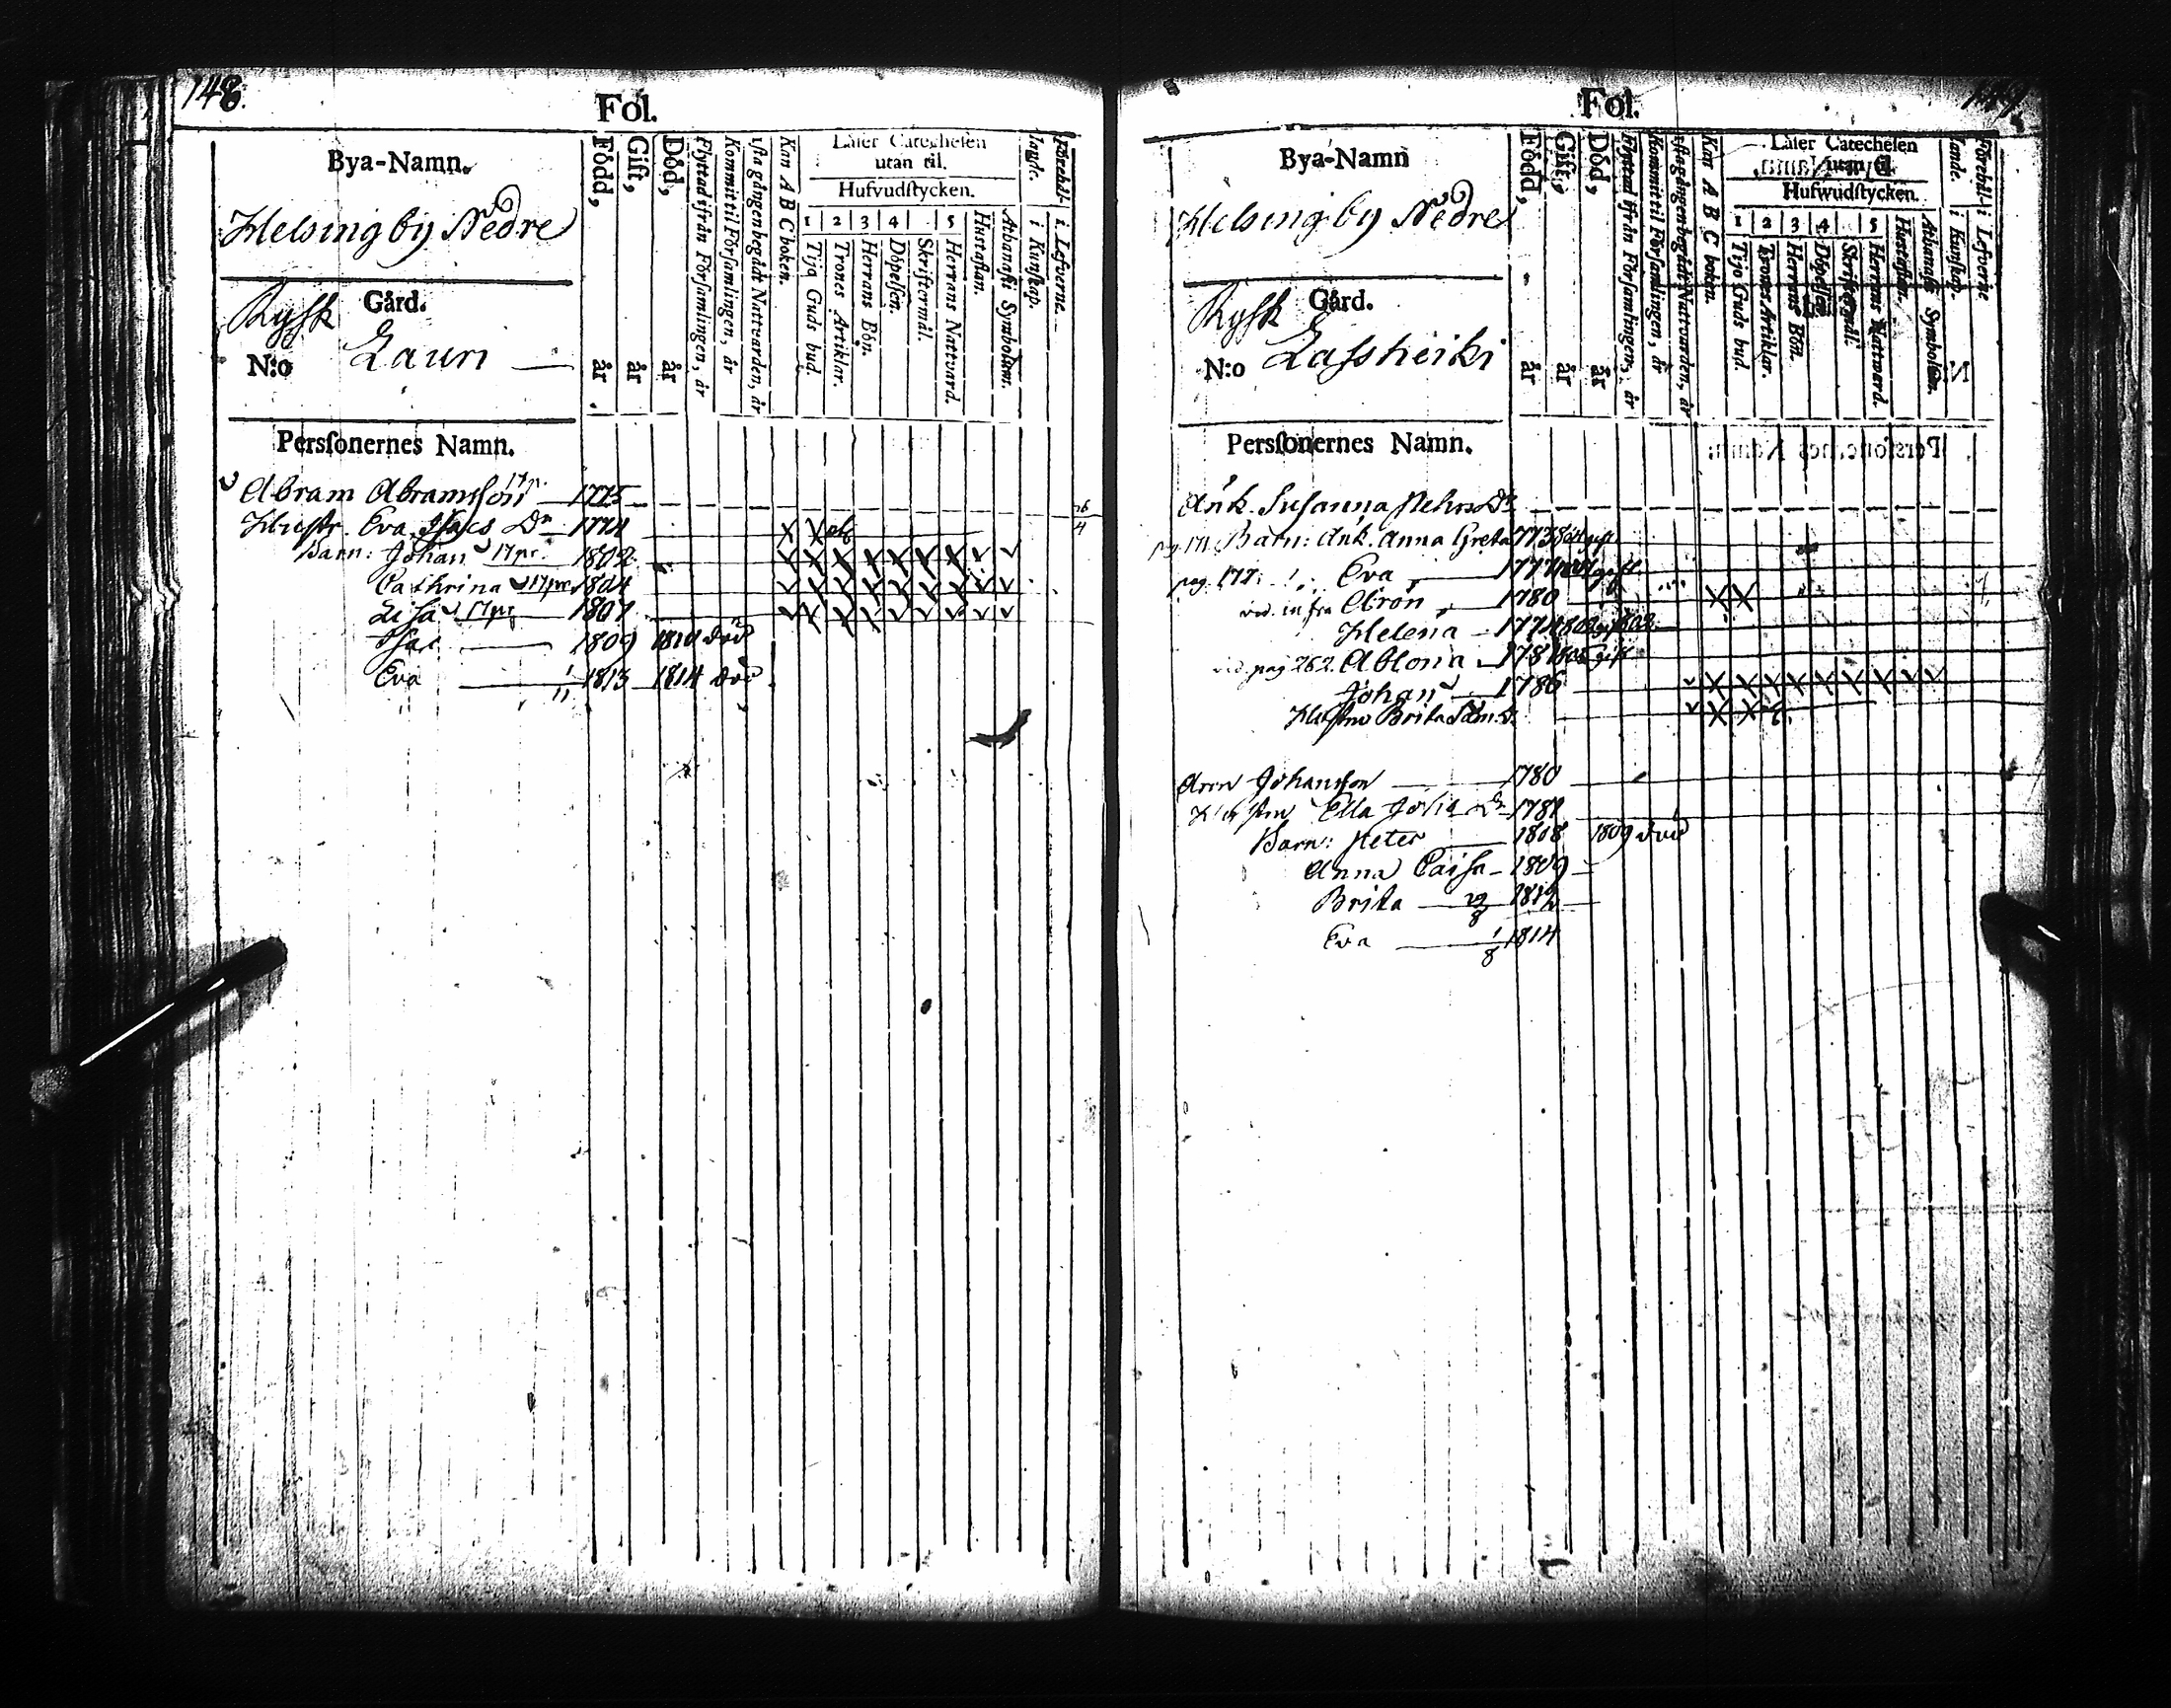 148.
Fol.
Bya-Namn.
Helsingby Nedre
Rysk Gård.
N:o Lauri
Född, år
Gift, år
Död, år
Flyttad ifrån Församlingen, år
Kommit til Församlingen, år
1sta gången begådt Nattvarden, år
Kan A B C boken.
Läser Catechesen
utan til.
Hufvudstycken.
1 2 3 4 5
Tijo Guds bud.
Trones Artiklar.
Herrans Bön.
Döpelsen.
Skriftermål.
Herrans Nattvard.
Hustaflan.
Athanasii Symbolum.
Förehållande.
i Kunskap.
i Lefverne
Persſonernes Namn.
Abram Abramsson 1775
Hustr. Eva Isacs Dr 1774
Barn: Johan 17pr. 1802
Cathrina 1804
Lisa 17pr 1807
Isac 1809 1810 död
Eva 1/11 1813 1814 död
149
Fol.
Bya-Namn
Helsingby Nedre
Rysk Gård.
N:o Lassheiki
Född, år
Gift, år
Död, år
Flyttad ifrån Församlingen, år
Kommit til Församlingen, år
1sta gången begådt Nattvarden, år
Kan A B C boken.
Läser Catechesen
utan til.
Hufwudstycken.
1 2 3 4 5
Tijo Guds bud.
Trones Artiklar.
Herrans Bön.
Döpelsen.
Skriftermål.
Herrans Nattward.
Hustaflan.
Athanasii Symbolum.
Förehållande.
i Kunskap.
i Lefverne
Persſonernes Namn.
Änk. Susanna Pehrs Dr
Barn: Änk. Anna Greta 1773 gift
pag. 177. Eva 1777 gift
vid. infra Aron 1780
Helena 1774 1802 gift
vid. pag 262. Ablona 1781 1805 gift
Johan 1786
Hustru Brita Sam. D.
Aron Johansson 1780
Hustru Ella Josia Dr 1781
Barn: Peter 1808 1809 död
Anna Caisa 1809
Brita 29/8 1812
Eva 1/8 1814